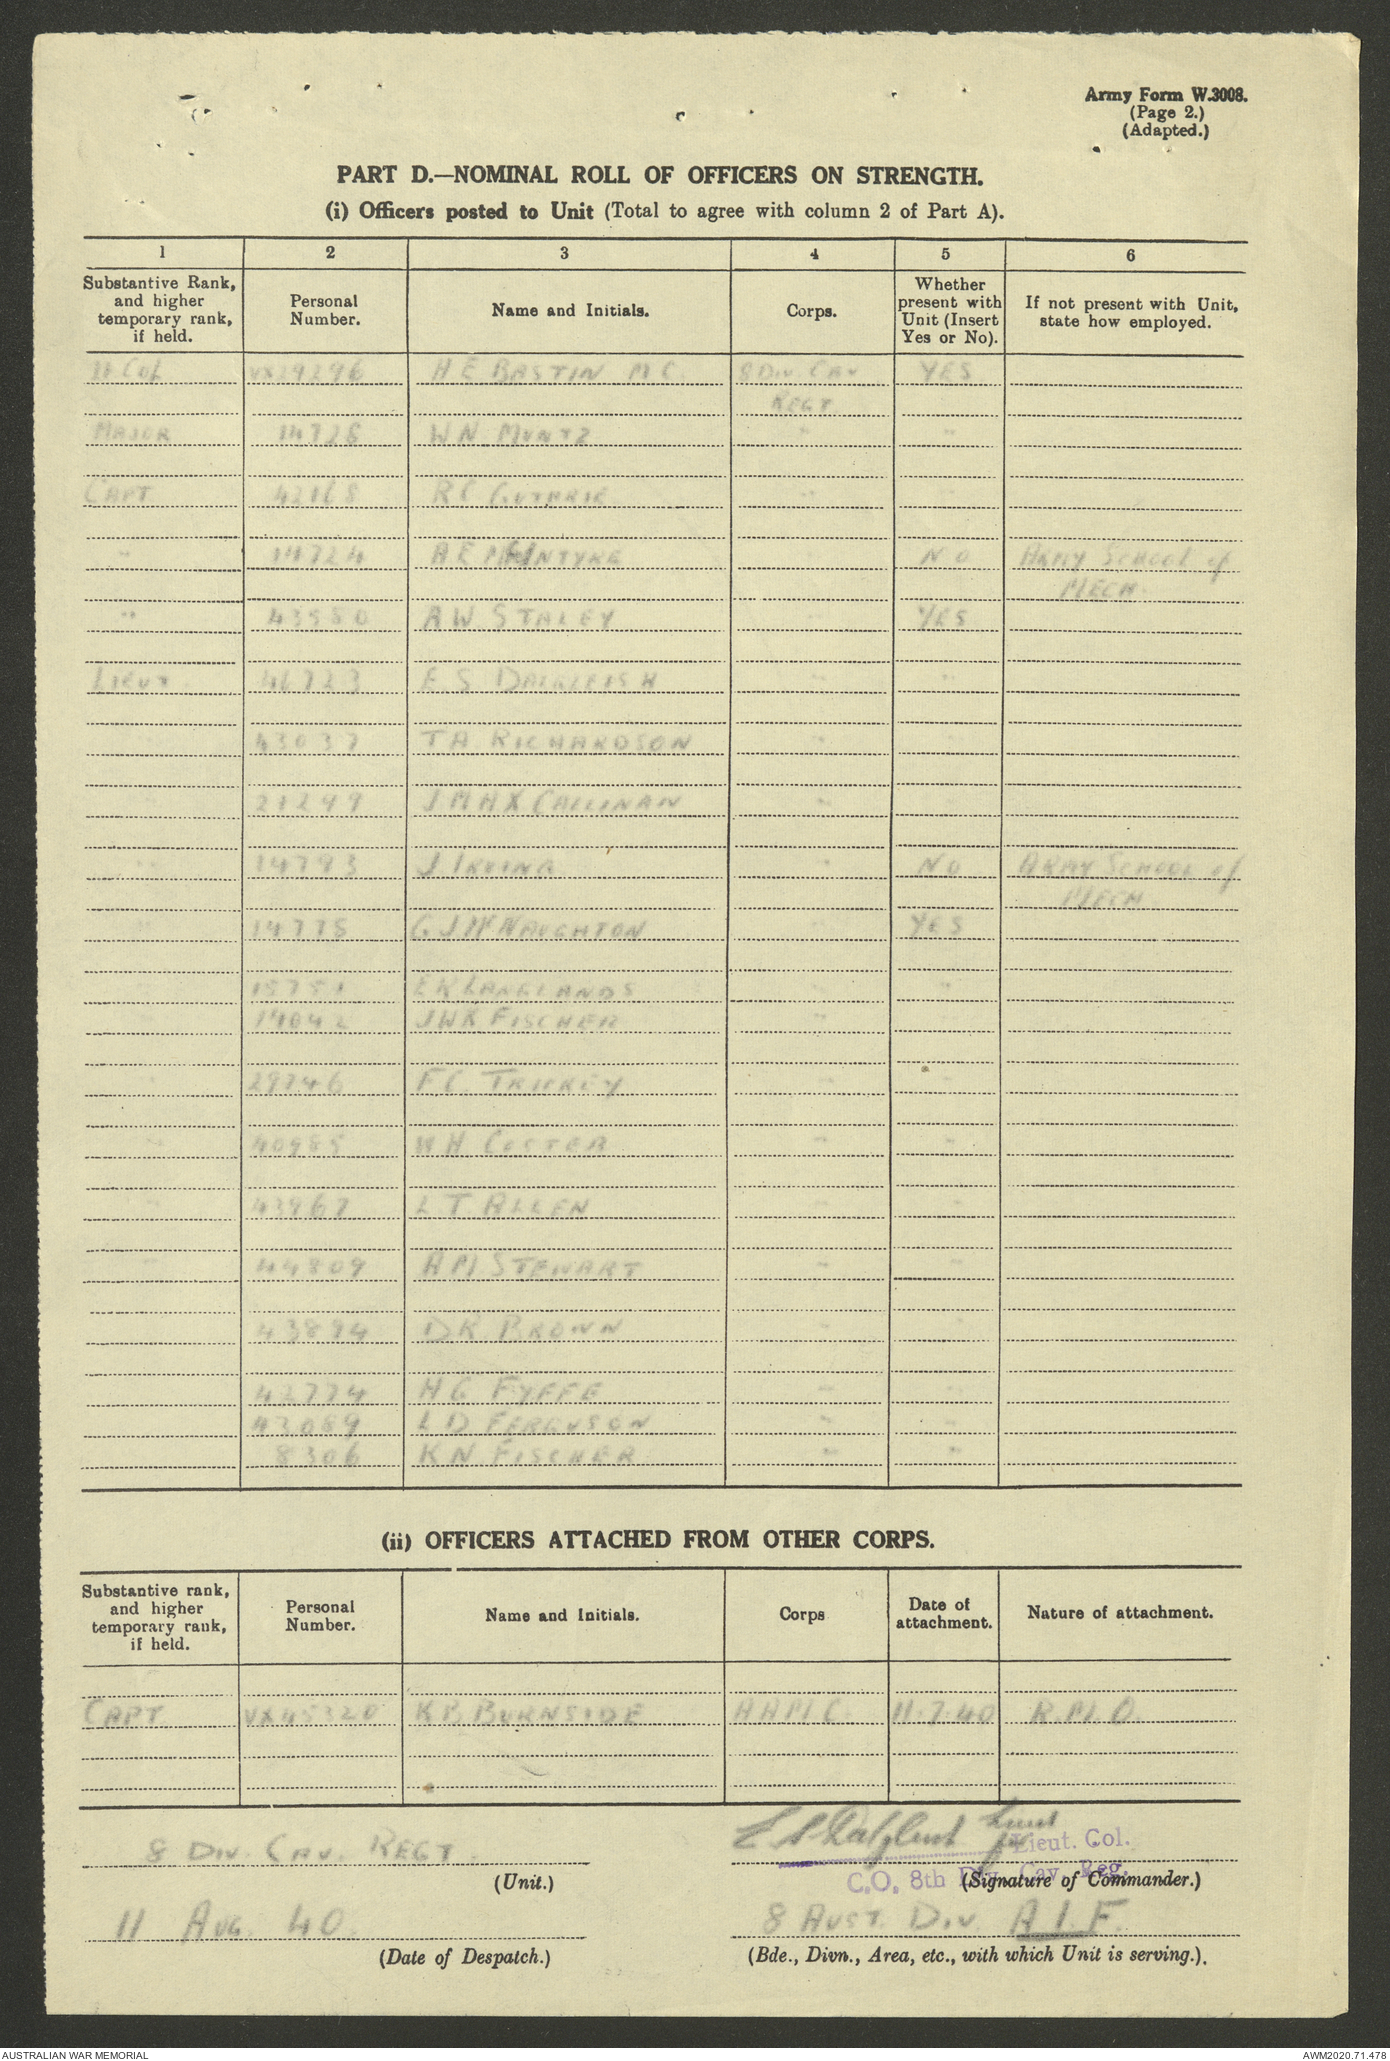 Army Form W.3008.
(Page 2.)
(Adapted.)
PART D.—NOMINAL ROLL OF OFFICERS ON STRENGTH.
(i) Officers posted to Unit (Total to agree with column 2 of Part A).
1 2 3 4 5 6
Substantive Rank, and higher temporary rank, if held. Personal Number. Name and Initials. Corps. Whether present with Unit (Insert Yes or No). If not present with Unit, state how employed.
Lt Col VX29296 H E BASTIN M C. 8 DIV. CAV YES
REGT
MAJOR 14728 W N MUNTZ " "
CAPT 42168 R C GUTHRIE " "
" 14724 A E McINTYRE NO ARMY SCHOOL of
MECH.
" 43580 A W STALEY " YES
LIEUT 46723 E. S. DALGLEISH " "
43037 T A. RICHARDSON "
" 21299 J MAX CALLINAN "
" 14793 J IRVING " NO ARMY SCHOOL of
MECH
" 14775 G J McNAUGHTON " YES
15751 E K LANGLANDS " "
14042 J W R FISCHER "
" 29746 F. C. TRICKEY " "
" 40985 W H COSTER " "
" 43967 L T ALLEN " "
" 44809 A M STEWART " "
43894 D K BROWN " "
42774 H G FYFFE " "
43089 L D FERGUSON " "
8306 K N FISCHER " "
(ii) OFFICERS ATTACHED FROM OTHER CORPS.
Substantive rank, and higher temporary rank, if held. Personal Number. Name and Initials. Corps Date of attachment. Nature of attachment.
CAPT VX45320 K B BURNSIDE A A M C. 11.7.40 R. M. O.
E S Dalgleish Lieut
8 DIV. CAV. REGT. for Lieut. Col.
(Unit.) C.O. 8th Div. Cav. Reg. (Signature of Commander.)
11 AUG. 40. 8 AUST. DIV. A I F.
(Date of Despatch.) (Bde., Divn., Area, etc., with which Unit is serving.).
AUSTRALIAN WAR MEMORIAL AWM2020.71.478